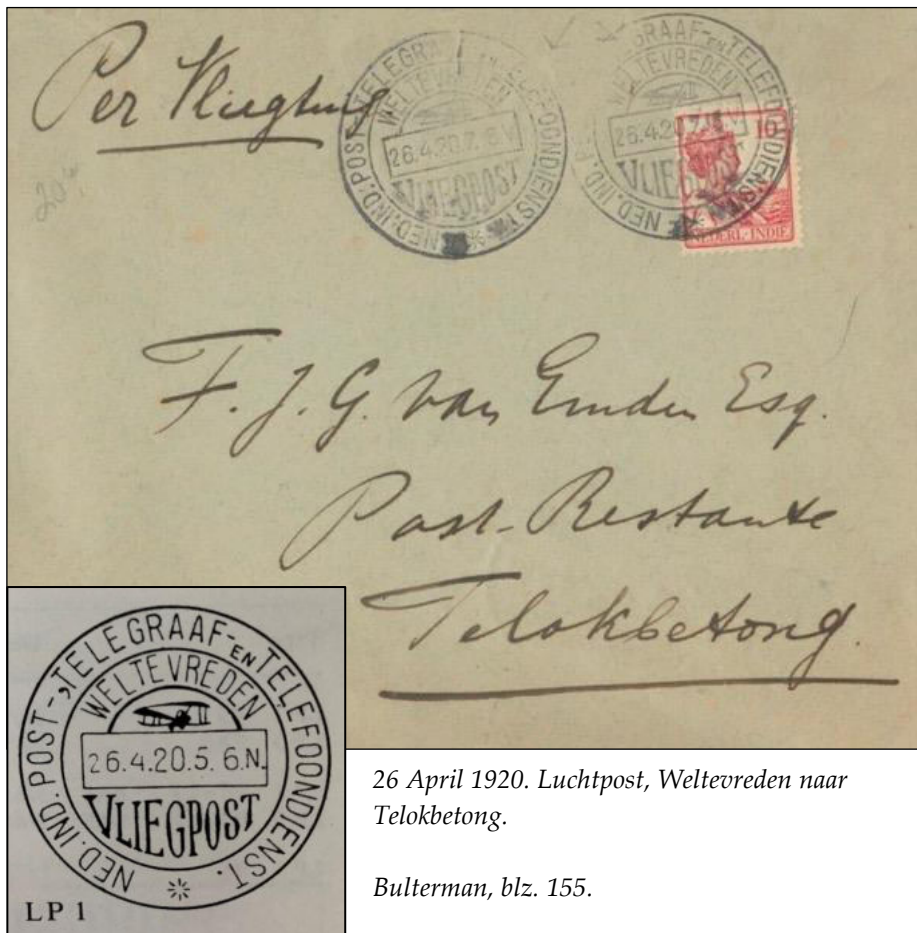 Per Vliegtuig
20
NED. IND. POST-, TELEGRAAF- EN TELEFOONDIENST.
WELTEVREDEN
26.4.20.7. 8 V
VLIEGPOST
NED. IND. POST-, TELEGRAAF- EN TELEFOONDIENST.
WELTEVREDEN
26.4.20.7. V
VLIEGPOST
10
NEDERL-INDIE
F. J. G. van Emden Esq.
Post-Restante
Telokbetong.
NED. IND. POST-, TELEGRAAF- EN TELEFOONDIENST.
WELTEVREDEN
26.4.20.5. 6.N.
VLIEGPOST
LP 1
26 April 1920. Luchtpost, Weltevreden naar
Telokbetong.
Bulterman, blz. 155.